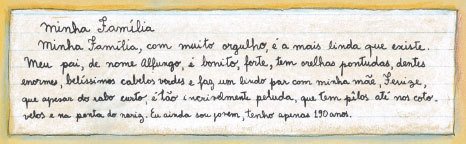 Minha Família
Minha Família, com muito orgulho, é a mais linda que existe.
Meu pai, de nome Alfungo, é bonito, forte, tem orelhas pontudas, dentes
enormes, belíssimos cabelos verdes e faz um lindo par com minha mãe, Ferize,
que apesar do rabo curto é tão incrivelmente peluda, que tem pêlos até nos coto-
velos e na ponta do nariz. Eu ainda sou jovem, tenho apenas 190 anos.